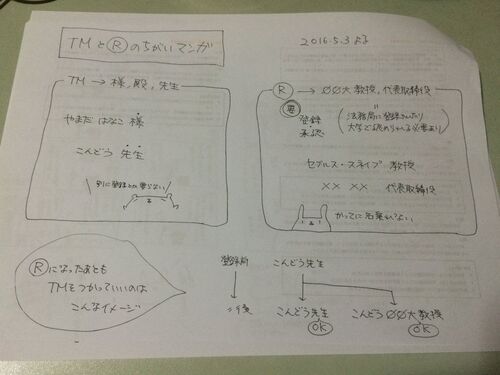 TMとⓇのちがいマンガ
2016.5.3 よる
TM → 様, 殿, 先生
やまだ はなこ 様
こんどう 先生
別に登録とか要らない
Ⓡ → ØØ大 教授, 代表取締役
要 登録 承認
(法務局に登録されたり
大学で認められる必要あり)
セブルス・スネイプ 教授
×× ×× 代表取締役
かってに名乗れない
Ⓡになったあとも
TMをつかっていいのは
こんなイメージ
登録前 こんどう先生
〃後 こんどう先生 こんどう ØØ大教授
OK OK